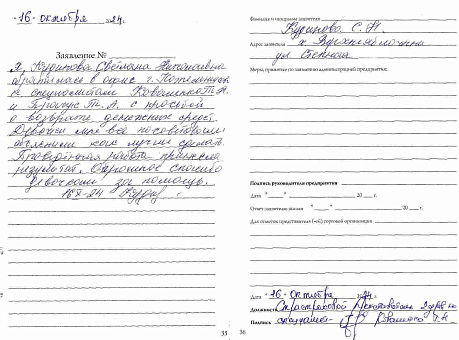 « 16 » октября 2024.
Заявление №
Я, Кудинова Светлана Николаевна
обратилась в офис г. Котельниково
к специалистам Коваленко Т.Н.
и Т.А. с просьбой
о возврате денежных средств.
Девочки мне всё посоветовали
объяснили как лучше сделать.
Проведённая работа принесла
результат. Огромное спасибо
девочкам за помощь.
35
Фамилия и инициалы заявителя Кудинова С. Н.
Адрес заявителя х.
ул Степная
Меры, принятые по заявлению администрацией предприятия:
Подпись руководителя предприятия
Дата « » 20 г.
Ответ заявителю выслан « » 20 г.
Для отметок представителя (-ей) торговой организации
Дата « 16 » октября 2024.
Должность Страховой
специалист
Подпись
36